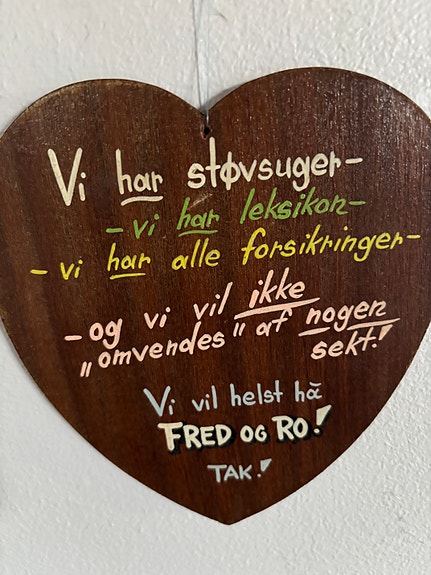 Vi har støvsuger-
- vi har leksikon-
- vi har alle forsikringer-
- og vi vil ikke
„omvendes" af nogen
sekt!
Vi vil helst hā
FRED OG RO!
TAK!